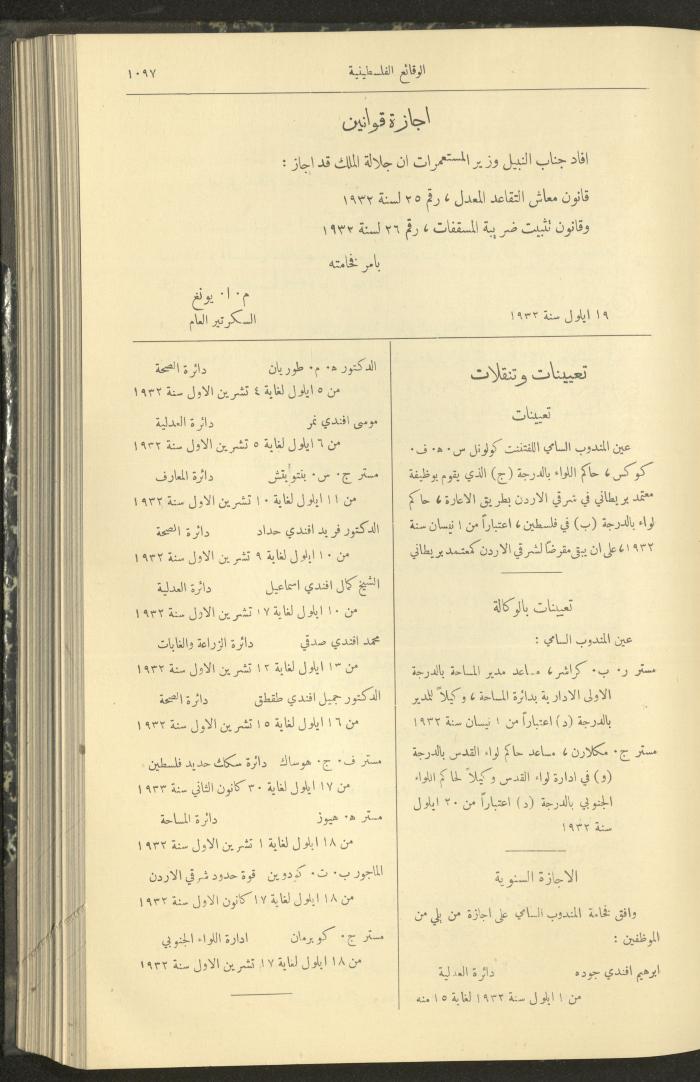 الوقائع الفلسطينية
١٠٩٧
اجازة قوانين
افاد جناب النبيل وزير المستعمرات ان جلالة الملك قد اجاز :
قانون معاش التقاعد المعدل ، رقم ٢٥ لسنة ١٩٣٢
وقانون تثبيت ضريبة المسقفات ، رقم ٢٦ لسنة ١٩٣٢
بامر فخامته
م . ا . يونغ
السكرتير العام
١٩ ايلول سنة ١٩٣٢
تعيينات وتنقلات
تعيينات
عين المندوب السامي اللفتننت كولونل س . ه . ف .
كوكس ، حاكم اللواء بالدرجة (ج) الذي يقوم بوظيفة
معتمد بريطاني في شرقي الاردن بطريق الاعارة ، حاكم
لواء بالدرجة (ب) في فلسطين ، اعتباراً من ١ نيسان سنة
١٩٣٢ ، على ان يبقى مقرضاً لشرقي الاردن كمعتمد بريطاني
تعيينات بالوكالة
عين المندوب السامي :
مستر ر . ب . كراشر ، مساعد مدير المساحة بالدرجة
الاولى الادارية بدائرة المساحة ، وكيلاً للمدير
بالدرجة (د) اعتباراً من ١ نيسان سنة ١٩٣٢
مستر ج . مكلارن ، مساعد حاكم لواء القدس بالدرجة
(و) في ادارة لواء القدس وكيلاً لحاكم اللواء
الجنوبي بالدرجة (د) اعتباراً من ٢٠ ايلول
سنة ١٩٣٢
الاجازة السنوية
وافق فخامة المندوب السامي على اجازة من يلي من
الموظفين :
ابرهيم افندي جوده دائرة العدلية
من ١ ايلول سنة ١٩٣٢ لغاية ١٥ منه
الدكتور ه . م . طوريان دائرة الصحة
من ٥ ايلول لغاية ٤ تشرين الاول سنة ١٩٣٢
موسى افندي نمر دائرة العدلية
من ٦ ايلول لغاية ٥ تشرين الاول سنة ١٩٣٢
مستر ج . س . بنتويتش دائرة المعارف
من ١١ ايلول لغاية ١٠ تشرين الاول سنة ١٩٣٢
الدكتور فريد افندي حداد دائرة الصحة
من ١٠ ايلول لغاية ٩ تشرين الاول سنة ١٩٣٢
الشيخ كمال افندي اسماعيل دائرة العدلية
من ١٠ ايلول لغاية ١٧ تشرين الاول سنة ١٩٣٢
محمد افندي صدقي دائرة الزراعة والغابات
من ١٣ ايلول لغاية ١٢ تشرين الاول سنة ١٩٣٢
الدكتور جميل افندي طقطق دائرة الصحة
من ١٦ ايلول لغاية ١٥ تشرين الاول سنة ١٩٣٢
مستر ف . ج . هوساك دائرة سكك حديد فلسطين
من ١٧ ايلول لغاية ٣٠ كانون الثاني سنة ١٩٣٣
مستر ه . هيوز دائرة المساحة
من ١٨ ايلول لغاية ١ تشرين الاول سنة ١٩٣٢
الماجور ب . ت . كودوين قوة حدود شرقي الاردن
من ١٨ ايلول لغاية ١٧ كانون الاول سنة ١٩٣٢
مستر ج . كوبرمان ادارة اللواء الجنوبي
من ١٨ ايلول لغاية ١٧ تشرين الاول سنة ١٩٣٢